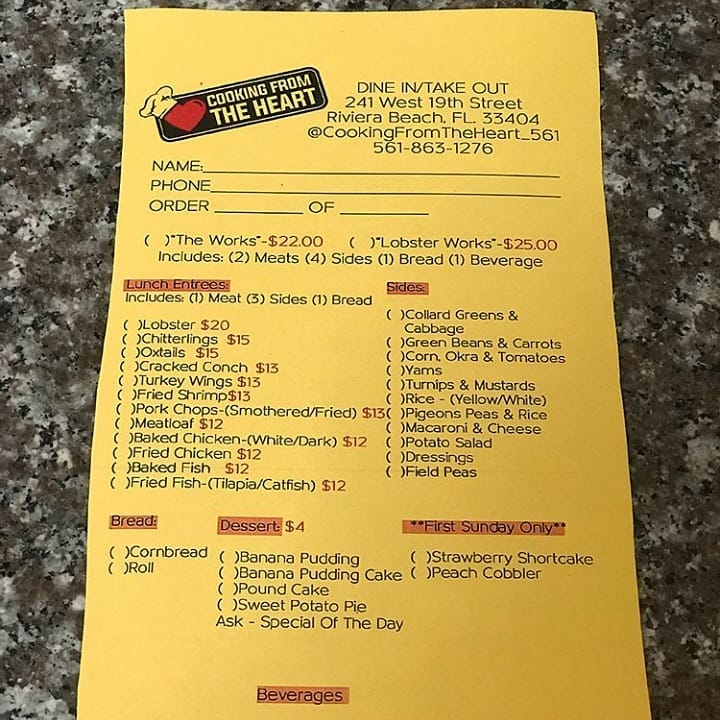 COOKING FROM
THE HEART
DINE IN/TAKE OUT
241 West 19th Street
Riviera Beach, FL. 33404
@CookingFromTheHeart_561
561-863-1276
NAME:
PHONE
ORDER OF
( )"The Works"-$22.00 ( )"Lobster Works"-$25.00
Includes: (2) Meats (4) Sides (1) Bread (1) Beverage
Lunch Entrees:
Includes: (1) Meat (3) Sides (1) Bread
( )Lobster $20
( )Chitterlings $15
( )Oxtails $15
( )Cracked Conch $13
( )Turkey Wings $13
( )Fried Shrimp$13
( )Pork Chops-(Smothered/Fried) $13
( )Meatloaf $12
( )Baked Chicken-(White/Dark) $12
( )Fried Chicken $12
( )Baked Fish $12
( )Fried Fish-(Tilapia/Catfish) $12
Sides:
( )Collard Greens &
Cabbage
( )Green Beans & Carrots
( )Corn, Okra & Tomatoes
( )Yams
( )Turnips & Mustards
( )Rice - (Yellow/White)
( )Pigeons Peas & Rice
( )Macaroni & Cheese
( )Potato Salad
( )Dressings
( )Field Peas
Bread:
( )Cornbread
( )Roll
Dessert: $4
( )Banana Pudding
( )Banana Pudding Cake
( )Pound Cake
( )Sweet Potato Pie
Ask - Special Of The Day
**First Sunday Only**
( )Strawberry Shortcake
( )Peach Cobbler
Beverages